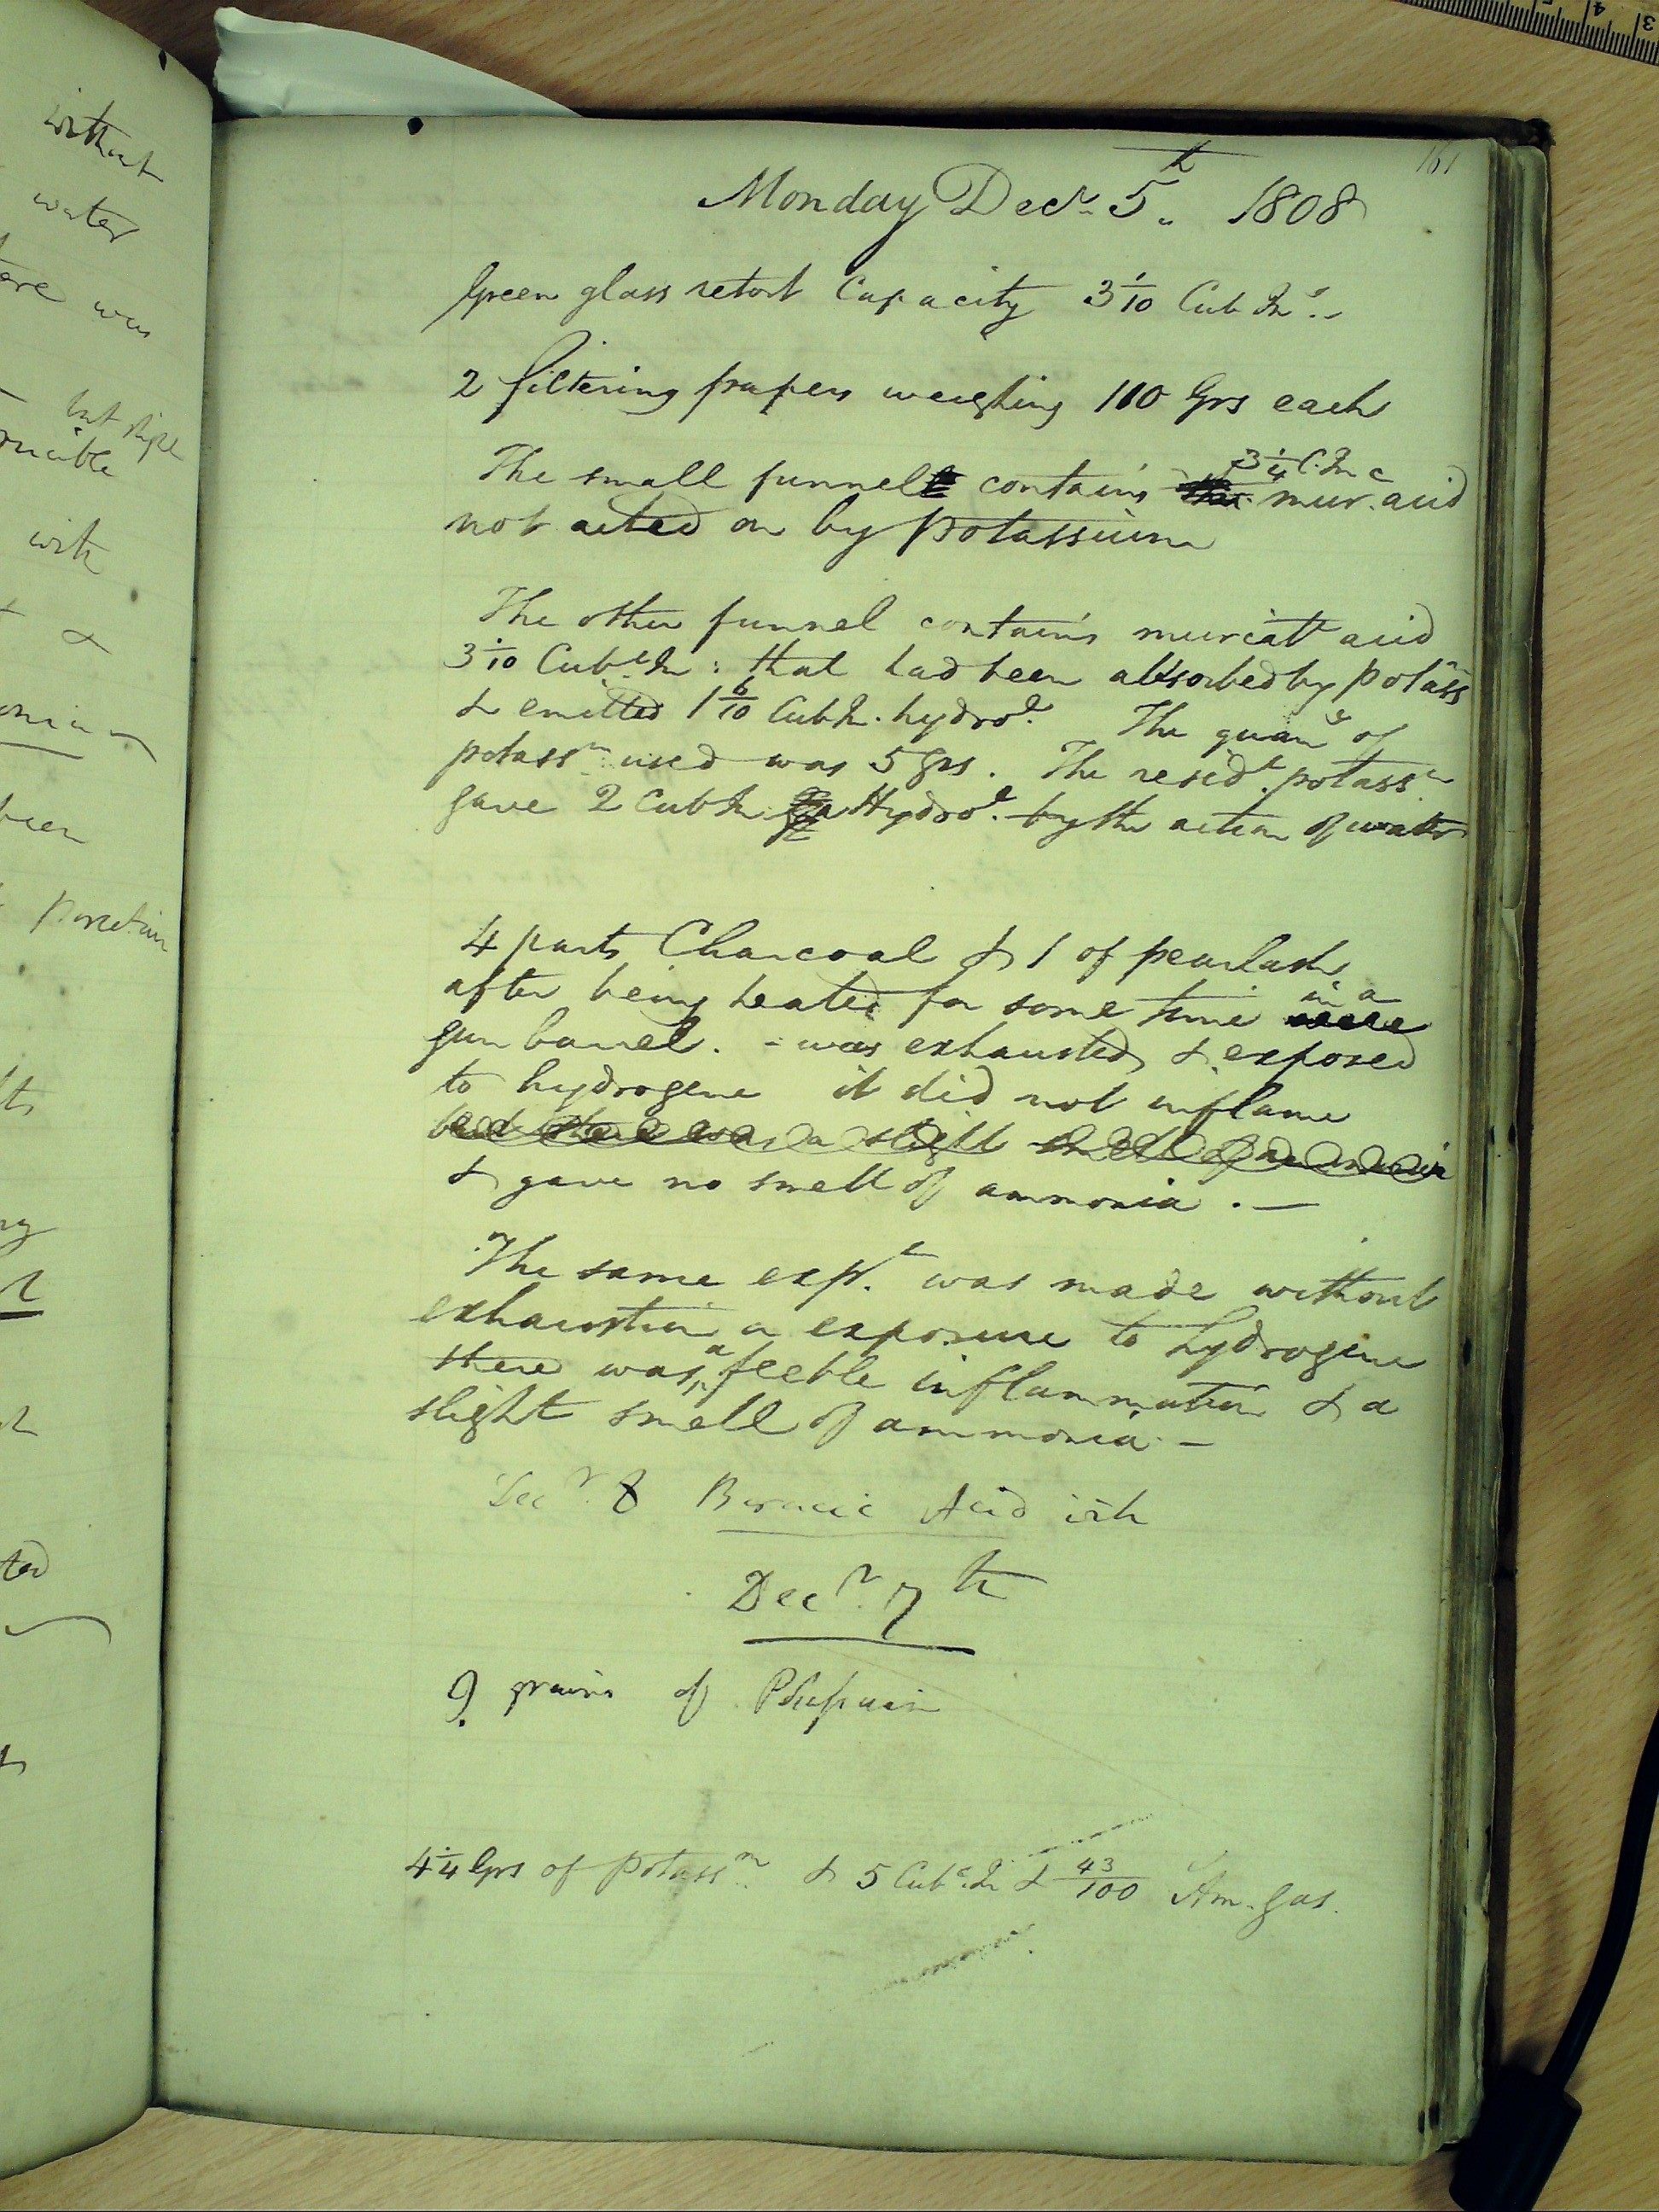 without
water
was
but
with
&
been
161
Monday Decr. 5th. 1808
Green glass retort Capacity 3 1/10 Cub Ins..
2 filtering papers weighing 110 Grs each
The small funnel contains 3 1/4 C. In mur.c acid
not acted on by potassium
The other funnel contains muriatc acid
3 1/10 Cubc In: that had been absorbed by potassm
& emitted 1 6/10 Cub In. hydroe. The quane of
potassm used was 5 grs. The residt. potassm
gave 2 Cub In Hydroe. by the action of water
4 parts Charcoal & 1 of pearlash
after being heated for some time in a
gun barrel. - was exhausted & exposed
to hydrogene it did not inflame
but there was a slight smell of ammonia
& gave no smell of ammonia. —
The same expt. was made without
exhaustion or exposure to hydrogene
there was a feeble inflammation & a
slight smell of ammonia —
Decr. 8 Boracic Acid
Decr. 7th
9 grains of
4 1/4 Grs of potassm & 5 Cubc. In & 43/100 Am. gas.